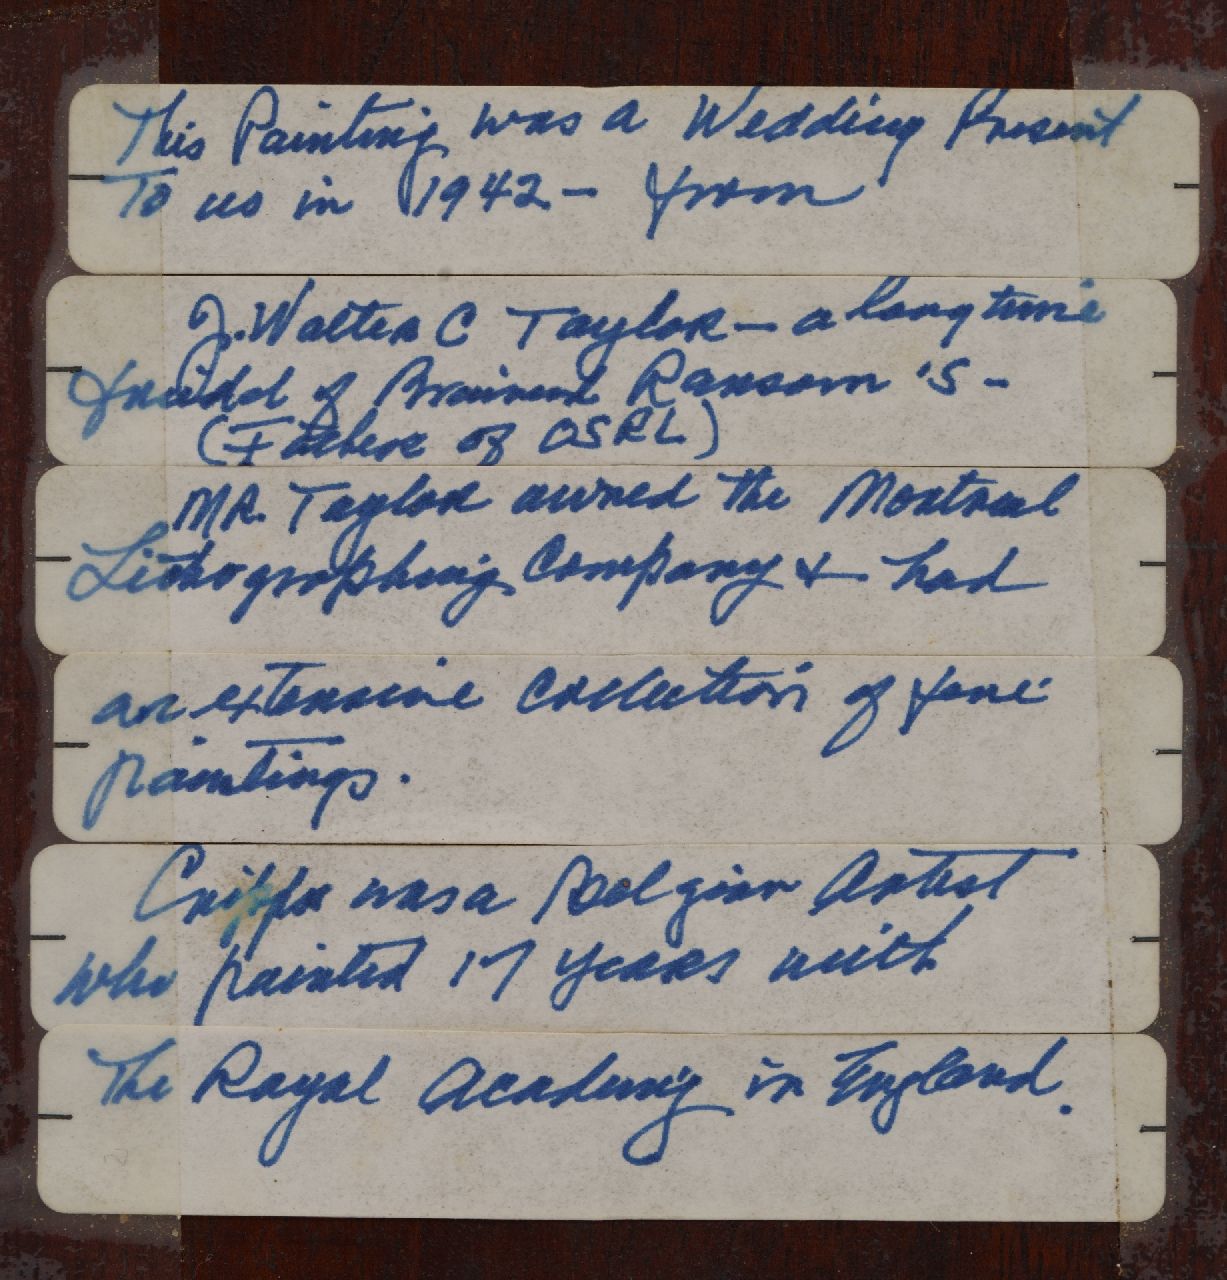 This Painting was a Wedding Present
To us in 1942 - from
J. Walter C Taylor - a long time
freidnd of Brainerd Ransom 's -
(Father of OSRL)
MR. Taylor owned the Montreal
Lithographing Company & had
an extensive collection of fine
paintings.
was a Belgian Artist
who painted 17 years with
The Royal Academy in England.